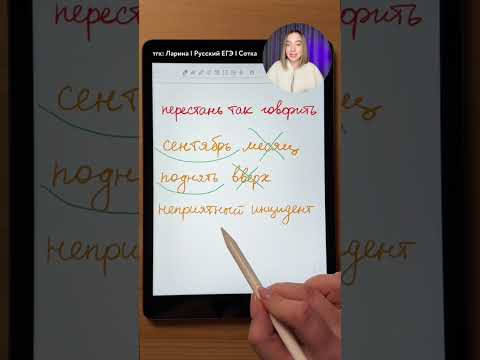 тгк: Ларина | Русский ЕГЭ | Сотка
перестань так говорить
сентябрь месяц
поднять вверх
неприятный инцидент